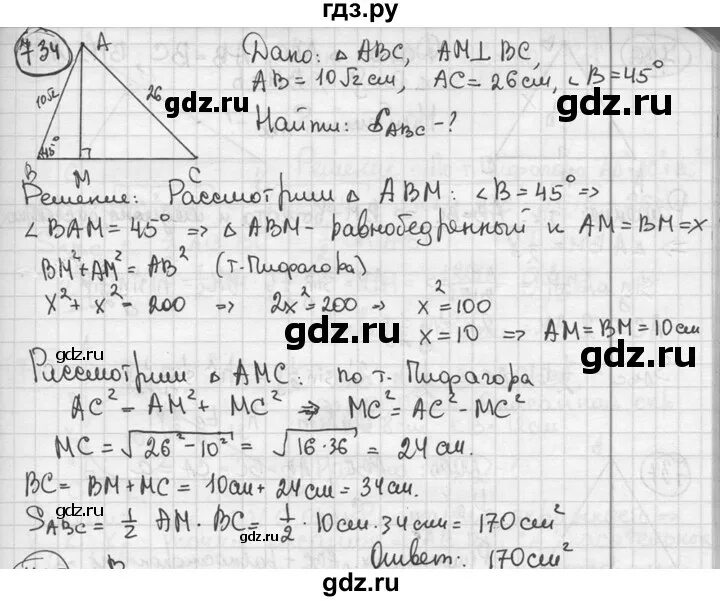 гдз.ру
734
A
Дано: △ ABC, AM⊥BC,
AB = 10√2 см, AC = 26 см, ∠B = 45°
10√2
26
gdz.ru
gdz.ru
Найти: S_ABC - ?
45°
B
M
C
Решение: Рассмотрим △ ABM: ∠B = 45° ⇒
∠BAM = 45° ⇒ △ ABM - равнобедренный и AM = BM = x
BM² + AM² = AB² (т. Пифагора)
x² + x² = 200 ⇒ 2x² = 200 ⇒ x² = 100
gdz.ru
x = 10 ⇒ AM = BM = 10 см
gdz.ru
gdz.ru
Рассмотрим △ AMC: по т. Пифагора
AC² = AM² + MC² ⇒ MC² = AC² - MC²
MC = √26² - 10² = √16·36 = 24 см.
BC = BM + MC = 10 см + 24 см = 34 см.
gdz.ru
gdz.ru
S_ABC = ½ AM · BC = ½ · 10 см · 34 см = 170 см²
gdz.ru
B
Ответ: 170 см²
gdz.ru